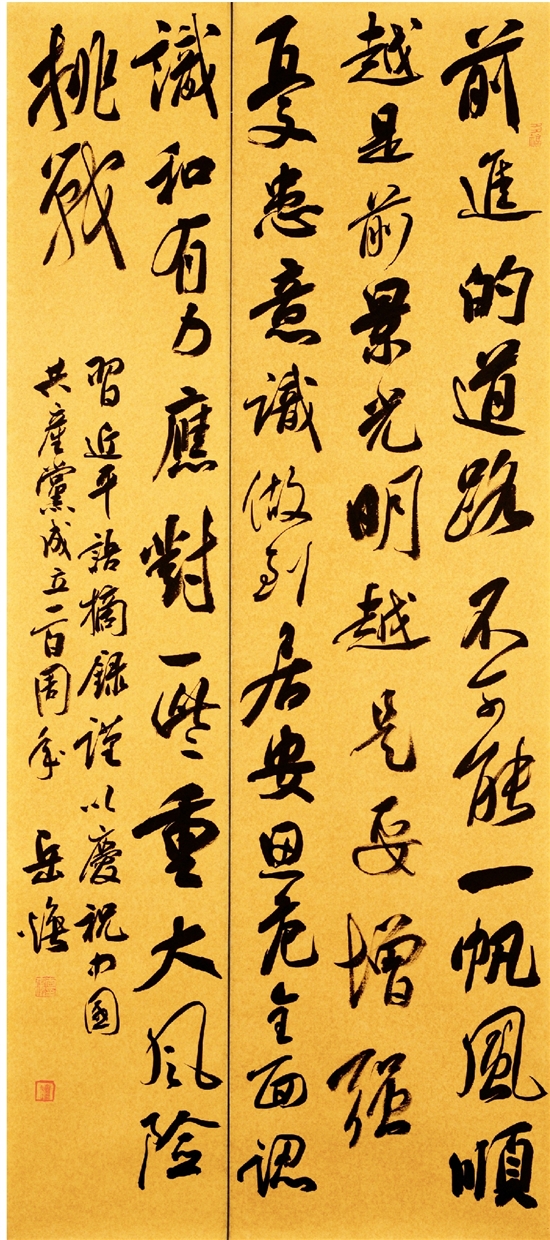 前進的道路不可能一帆風順
越是前景光明越是要增强
憂患意識做到居安思危全面認
識和有力應對一些重大风险
挑戰
習近平語摘録謹以慶祝中國
共産黨成立一百周年 岳